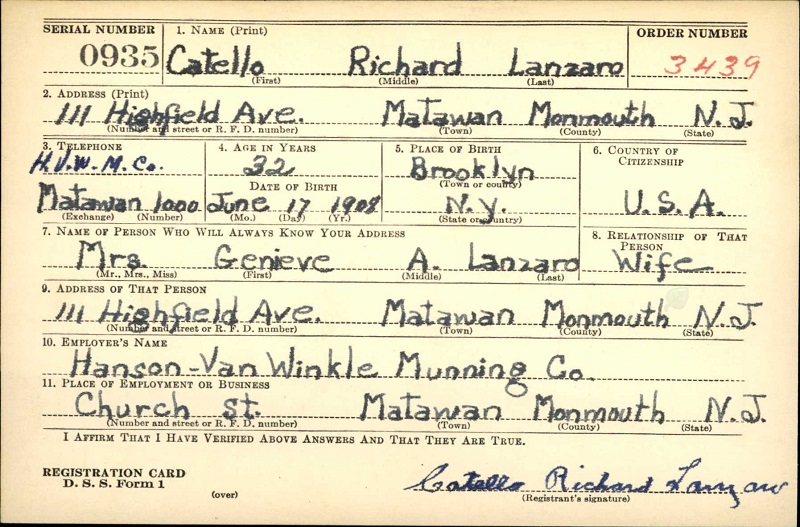 SERIAL NUMBER 1. NAME (Print) ORDER NUMBER
0935 Catello Richard Lanzaro 3439
(First) (Middle) (Last)
2. ADDRESS (Print)
111 Highfield Ave. Matawan Monmouth N.J.
(Number and street or R. F. D. number) (Town) (County) (State)
3. TELEPHONE 4. AGE IN YEARS 5. PLACE OF BIRTH 6. COUNTRY OF CITIZENSHIP
H.V.W.M.Co. 32 Brooklyn
DATE OF BIRTH (Town or county)
Matawan 1000 June 17 1908 N.Y. U.S.A.
(Exchange) (Number) (Mo.) (Day) (Yr.) (State or country)
7. NAME OF PERSON WHO WILL ALWAYS KNOW YOUR ADDRESS 8. RELATIONSHIP OF THAT PERSON
Mrs. Genieve A. Lanzaro Wife
(Mr., Mrs., Miss) (First) (Middle) (Last)
9. ADDRESS OF THAT PERSON
111 Highfield Ave. Matawan Monmouth N.J.
(Number and street or R. F. D. number) (Town) (County) (State)
10. EMPLOYER'S NAME
Hanson-Van Winkle Munning Co.
11. PLACE OF EMPLOYMENT OR BUSINESS
Church St. Matawan Monmouth N.J.
(Number and street or R. F. D. number) (Town) (County) (State)
I AFFIRM THAT I HAVE VERIFIED ABOVE ANSWERS AND THAT THEY ARE TRUE.
REGISTRATION CARD
D. S. S. Form 1
(over)
Catello Richard Lanzaro
(Registrant's signature)